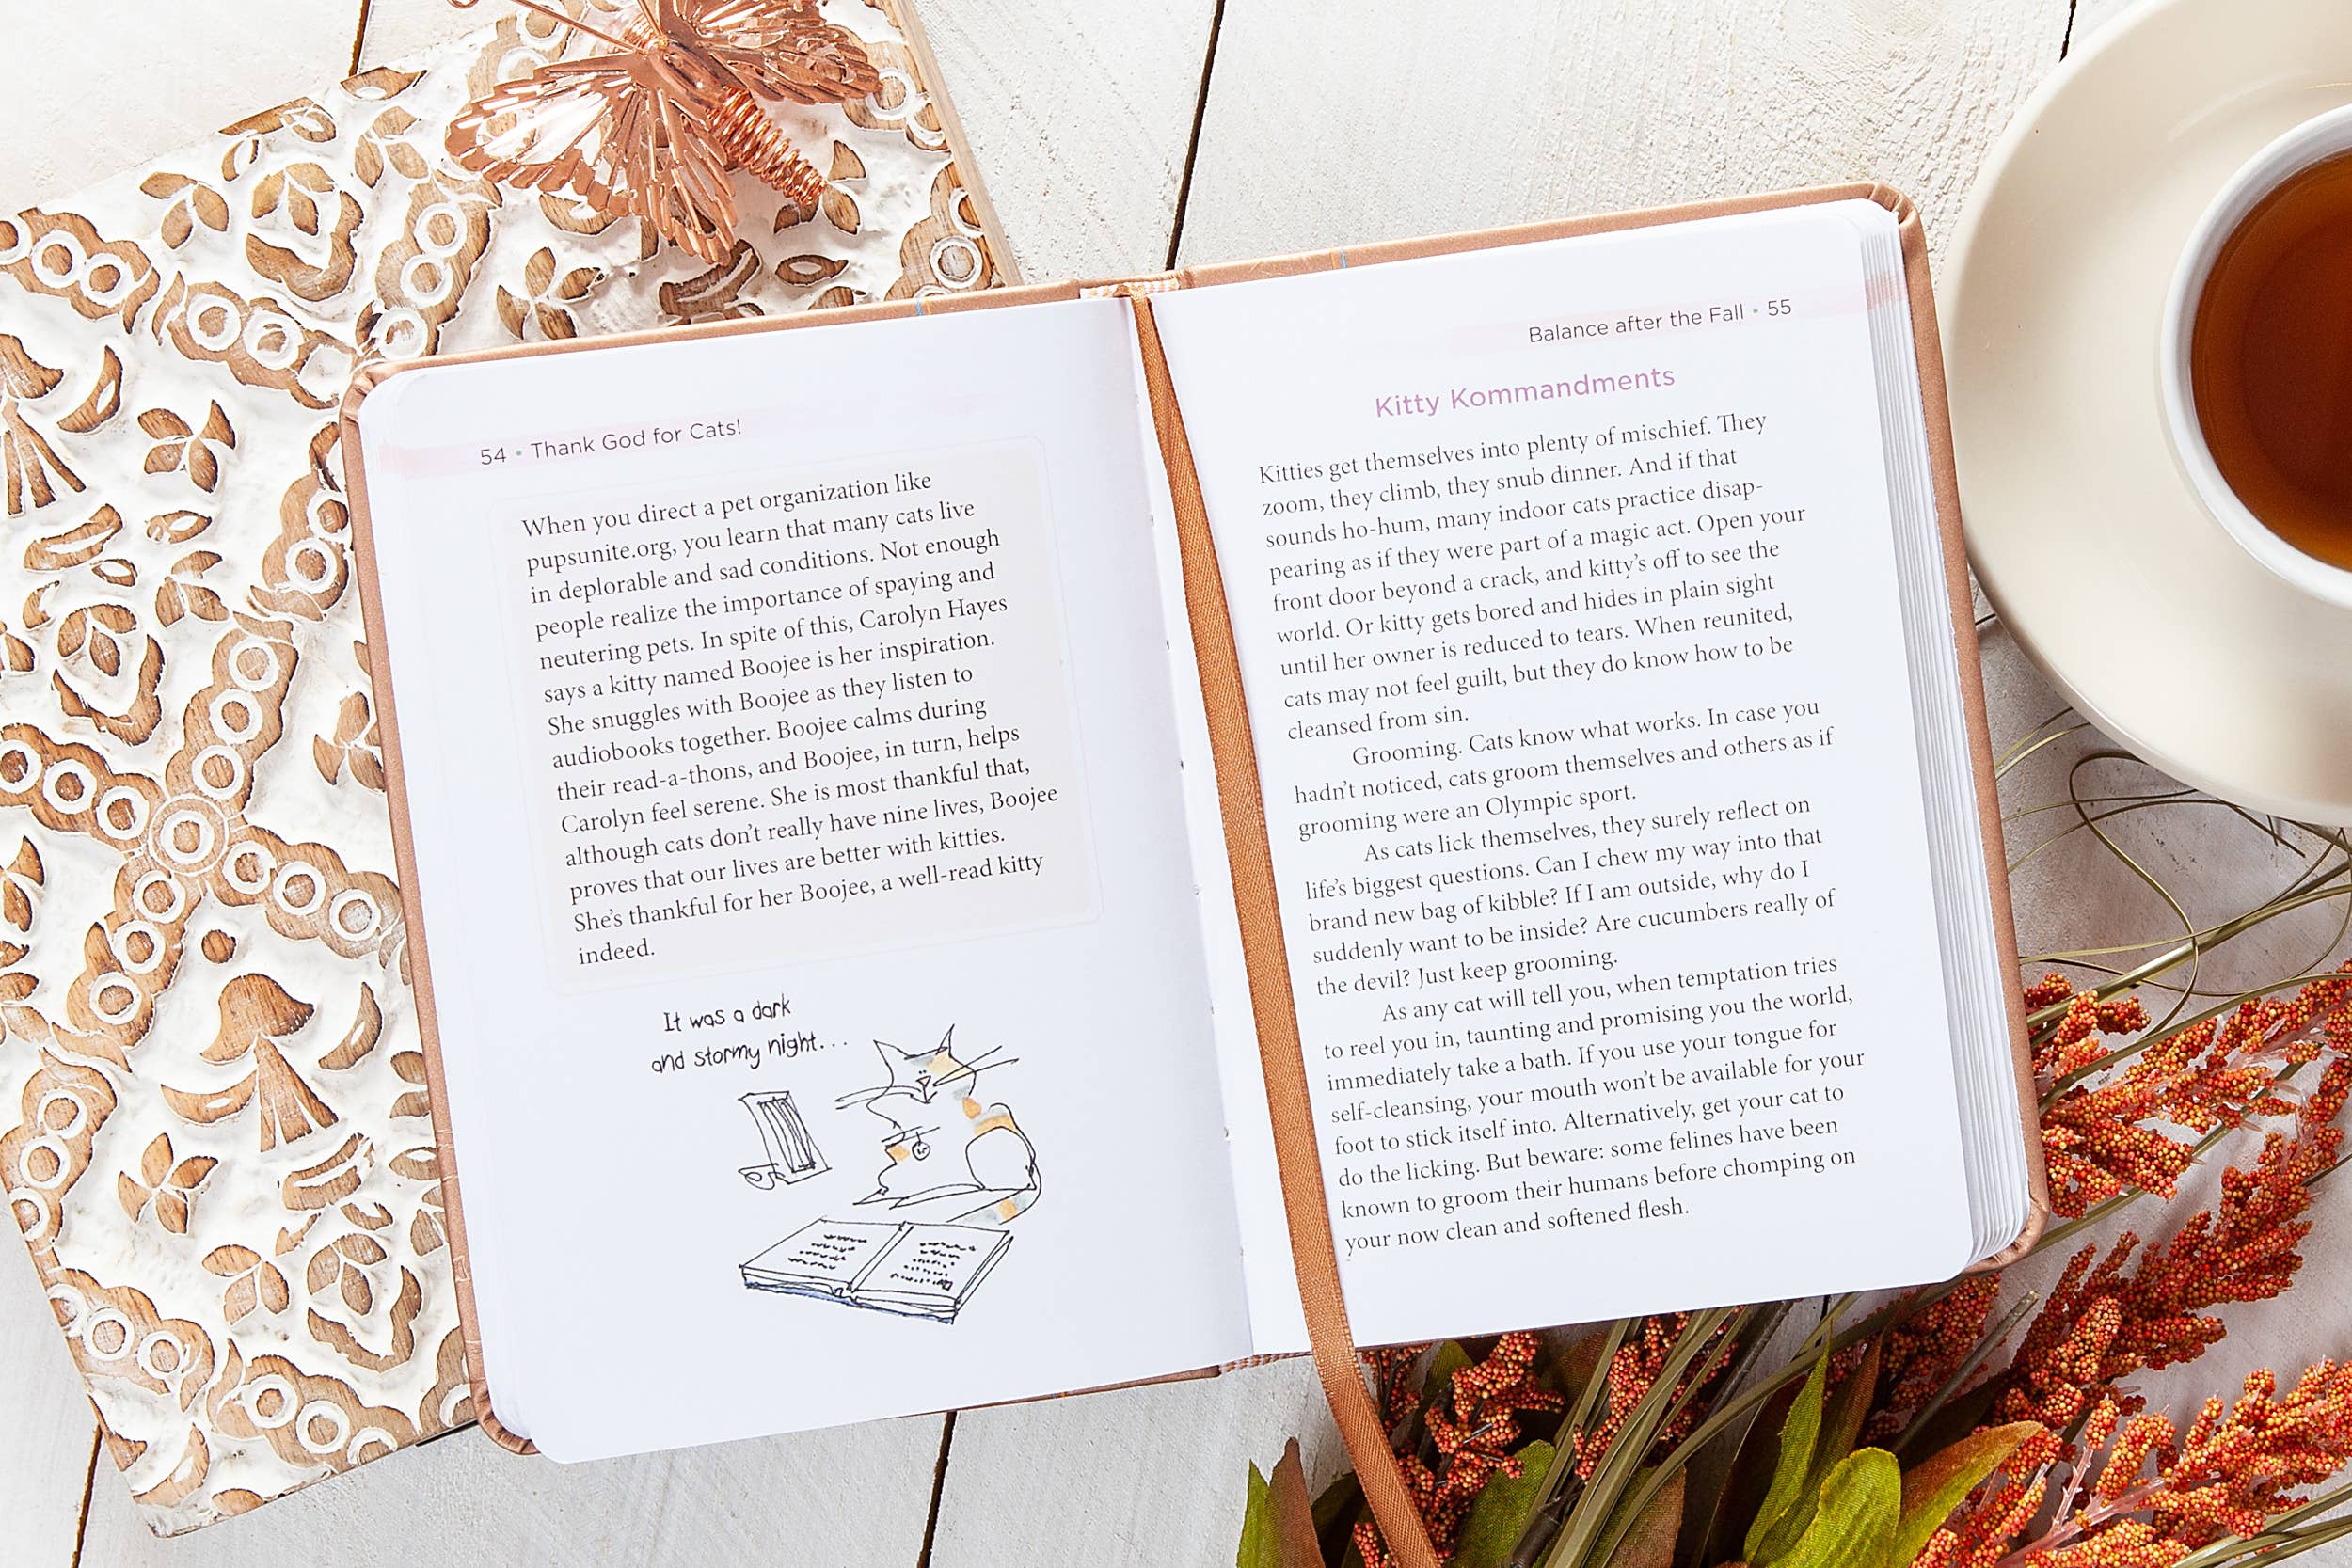 54 • Thank God for Cats!
When you direct a pet organization like
pupsunite.org, you learn that many cats live
in deplorable and sad conditions. Not enough
people realize the importance of spaying and
neutering pets. In spite of this, Carolyn Hayes
says a kitty named Boojee is her inspiration.
She snuggles with Boojee as they listen to
audiobooks together. Boojee calms during
their read-a-thons, and Boojee, in turn, helps
Carolyn feel serene. She is most thankful that,
although cats don't really have nine lives, Boojee
proves that our lives are better with kitties.
She's thankful for her Boojee, a well-read kitty
indeed.
It was a dark
and stormy night...
Balance after the Fall • 55
Kitty Kommandments
Kitties get themselves into plenty of mischief. They
zoom, they climb, they snub dinner. And if that
sounds ho-hum, many indoor cats practice disap-
pearing as if they were part of a magic act. Open your
front door beyond a crack, and kitty's off to see the
world. Or kitty gets bored and hides in plain sight
until her owner is reduced to tears. When reunited,
cats may not feel guilt, but they do know how to be
cleansed from sin.
Grooming. Cats know what works. In case you
hadn't noticed, cats groom themselves and others as if
grooming were an Olympic sport.
As cats lick themselves, they surely reflect on
life's biggest questions. Can I chew my way into that
brand new bag of kibble? If I am outside, why do I
suddenly want to be inside? Are cucumbers really of
the devil? Just keep grooming.
As any cat will tell you, when temptation tries
to reel you in, taunting and promising you the world,
immediately take a bath. If you use your tongue for
self-cleansing, your mouth won't be available for your
foot to stick itself into. Alternatively, get your cat to
do the licking. But beware: some felines have been
known to groom their humans before chomping on
your now clean and softened flesh.